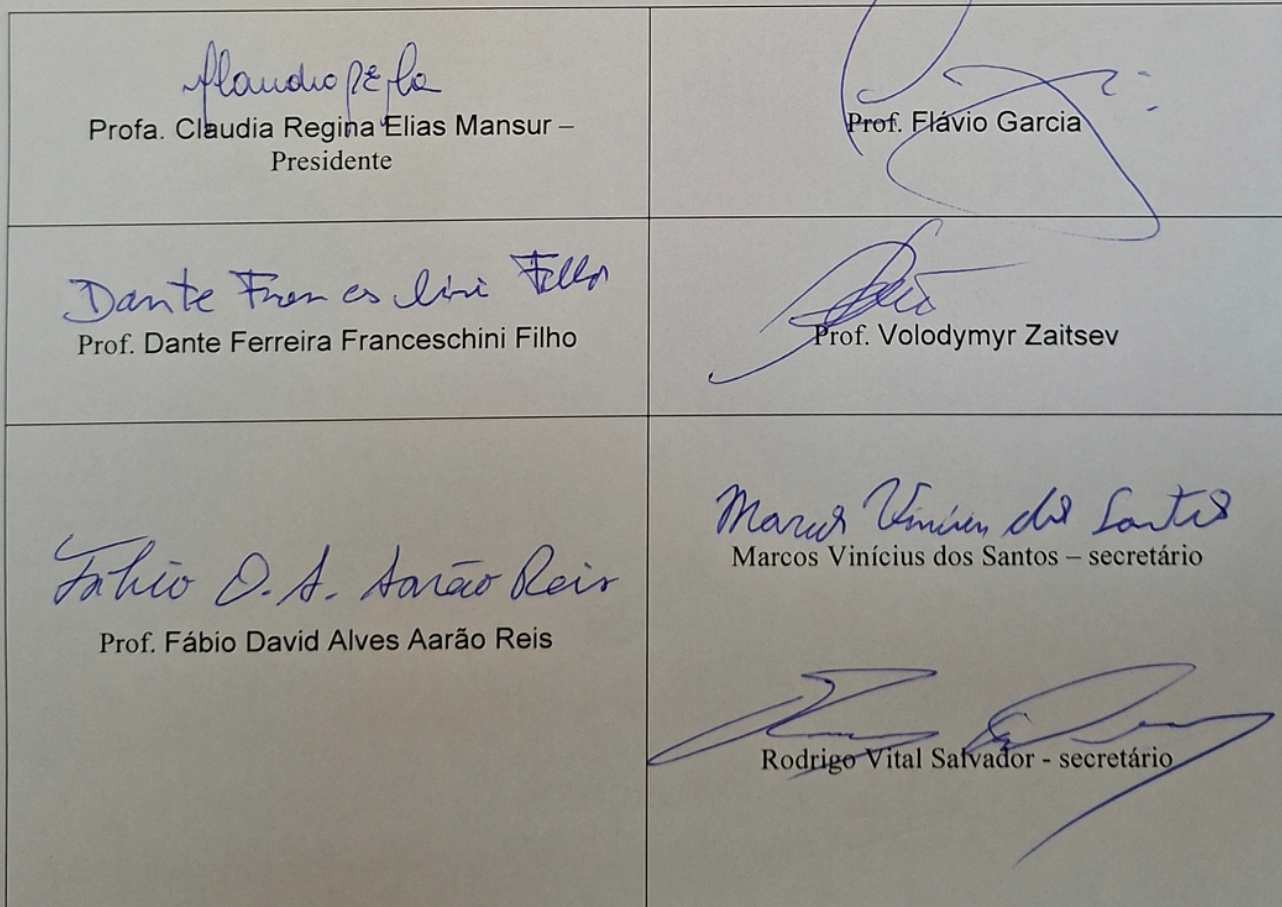 Profa. Claudia Regina Elias Mansur –
Presidente
Prof. Flávio Garcia
Dante Franceschini Filho
Prof. Dante Ferreira Franceschini Filho
Prof. Volodymyr Zaitsev
Fábio D. A. Aarão Reis
Prof. Fábio David Alves Aarão Reis
Marcos Vinícius dos Santos
Marcos Vinícius dos Santos – secretário
Rodrigo Vital Salvador - secretário